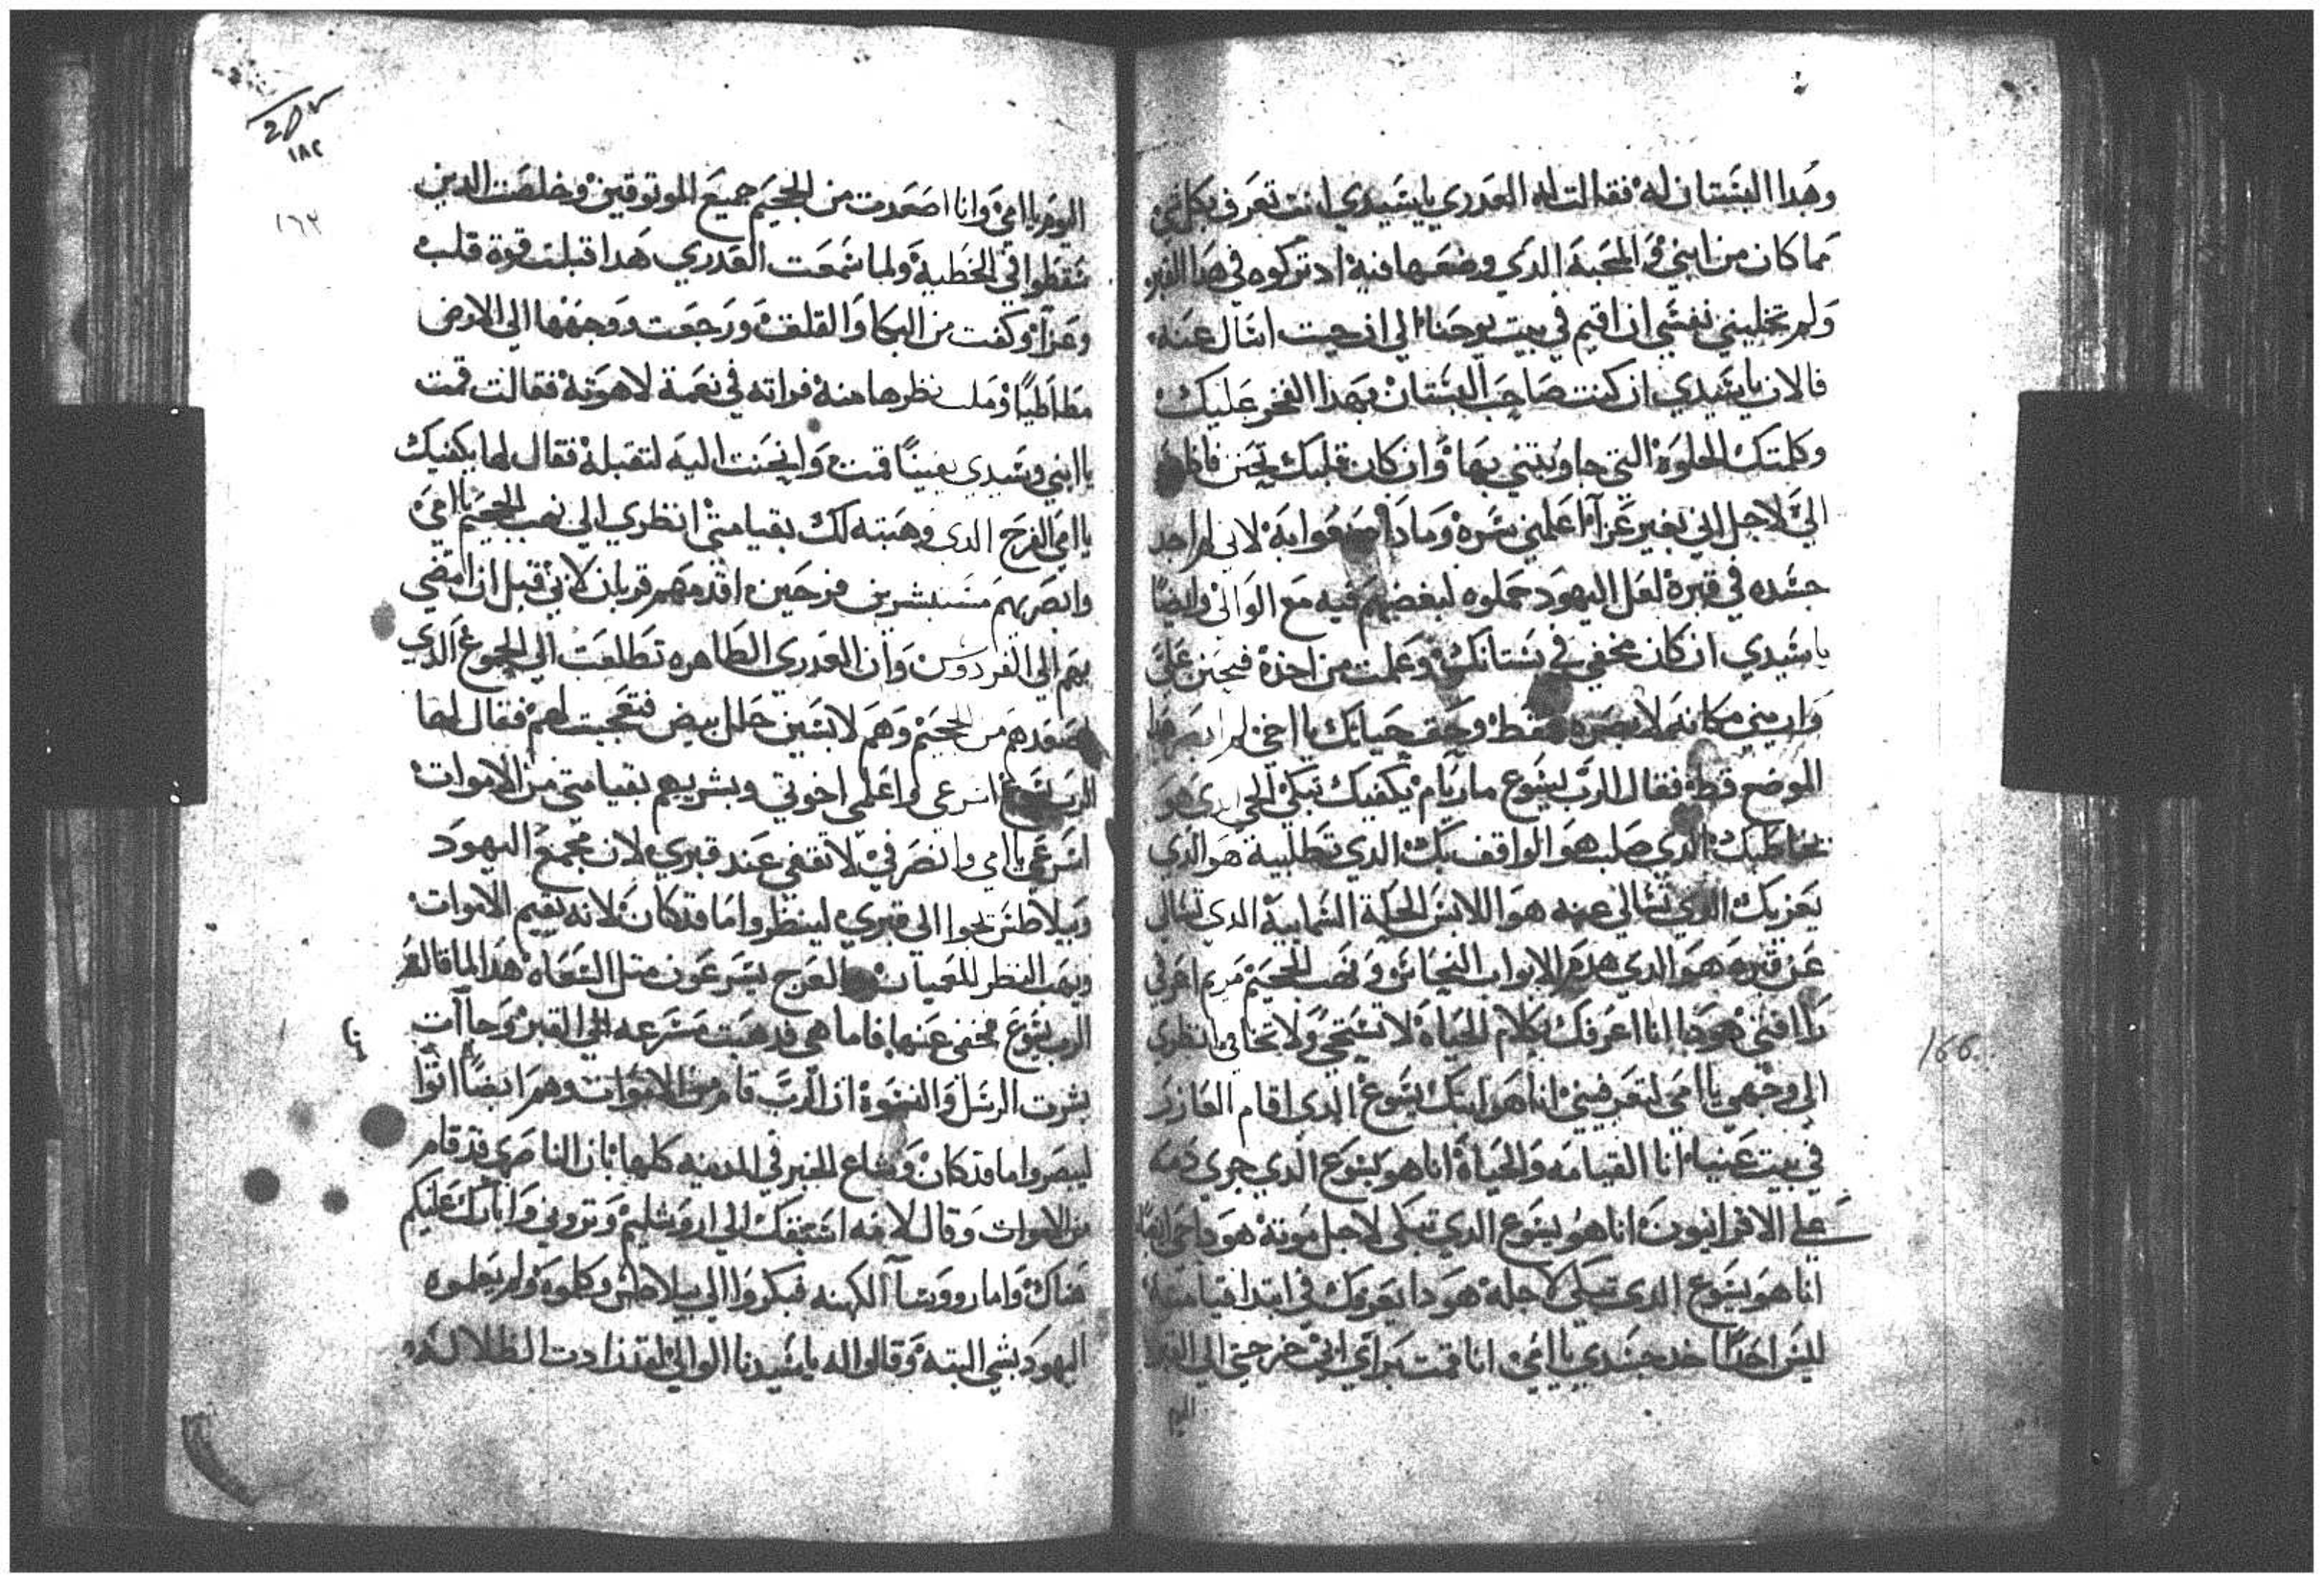 وهدا البستان له فقالت له العدري يا سيدي انت تعرف بكل شي
مما كان من ابني والمحبة الدي وضعها فيه اد تركوه في هدا القبر
ولم تخليني نفسي ان اقيم في بيت يوحنا الي ان جيت اسال عنه
فالان يا سيدي ان كنت صاحب البستان فهدا الفخر عليك
وكلمتك الحلوه التي جاوبتني بها وان كان قلبك يحنن
الي لاجل اني بغير عزآ اعلمني سره وماذا به لاني لم اجد
جسده في قبره لعل اليهود حملوه لبغضهم فيه مع الوالي وايضا
يا سيدي ان كان مخفي في بستانك وعلمت من اخذه فتحنن علي
واريني مكانه لابصره فقط وحق حياتك يا اخي لم ابصر هدا
الموضع قط فقال الرب ليسوع مار يام يكفيك تبكي الحي الدي هو
يخاطبك الدي صلب هو الواقف بك الدي تطلبيه هو الدي
يعزيك الدي تسالي عنه هو اللابس الحلة السمايية الدي تسالي
عن قبره هو الدي هدم الابواب النحاس ونهب الجحيم مريم اعرفي
يا امي هودا انا اعرفك بكلام الحياه لا تستحي ولا تخافي انظري
الي وجهي يا امي لتعرفيني انا هو ابنك يسوع الدي اقام العازر
في بيت عنيا انا القيامه والحياة انا هو يسوع الدي جري دمه
علي الاقرانيون انا هو يسوع الدي تبكي لاجل موته هودا حي
انا هو يسوع الدي تبكي لاجله هودا يعزيك في ابتدا قيامته
ليس احدا اخد جسدي يا امي انا قمت براي ابي خرجتي الي القبر
اليوم
٢٥٧
١٨٢
١٦٢
166
اليوم يا امي وانا اصعدت من الجحيم جميع الموتوقين وخلصت الدين
سقطوا في الخطية ولما سمعت العدري هدا قبلت قوة قلب
وعزآ وكفت من البكا والقلق ورجعت ووجهها الي الارض
مطاطيا نظرها منه فراته في نعمة لاهوته فقالت قمت
يا ابني وسيدي يقينا قمت وانحنت اليه لتقبله فقال لها يكفيك
يا امي الفرح الدي وهبته لك بقيامتي انظري الي نهب الجحيم يا امي
وابصريهم مستبشرين فرحين اقدمهم قربان لابي قبل ان امضي
بهم الي الفردوس وان العدري الطاهره تطلعت الي الجموع الدي
اصعدهم من الجحيم وهم لابسين حلل بيض فتعجبت لهم فقال لها
الرب يسوع اسرعي واعلمي اخوتي وبشريهم بقيامتي من الاموات
اسرعي يا امي وانصرفي لا تقفي عند قبري لان مجمع اليهود
وبيلاطس يجوا الي قبري لينظروا ما قد كان لانه يقيم الاموات
ويهب النظر للعميان والعرج يسرعون متل السعاه هدا لما قاله
الرب يسوع مخفي عنها فاما هي فدهبت مسرعه الي القبر وجآت
بشرت الرسل والنسوة ان الرب قام من الاموات وهم ايضا اتوا
ليبصروا ما قد كان وشاع الخبر في المدينه كلها بان الناصري قد قام
من الاموات وقال لامه اسبقك الي اروشليم وتروني وابارك عليكم
هناك واما روسآ الكهنه فبكروا الي بيلاطس وكلموه ولم يعلموه
اليهود بشي البته وقالوا له يا سيدنا الوالي لقد زادت الظلالة